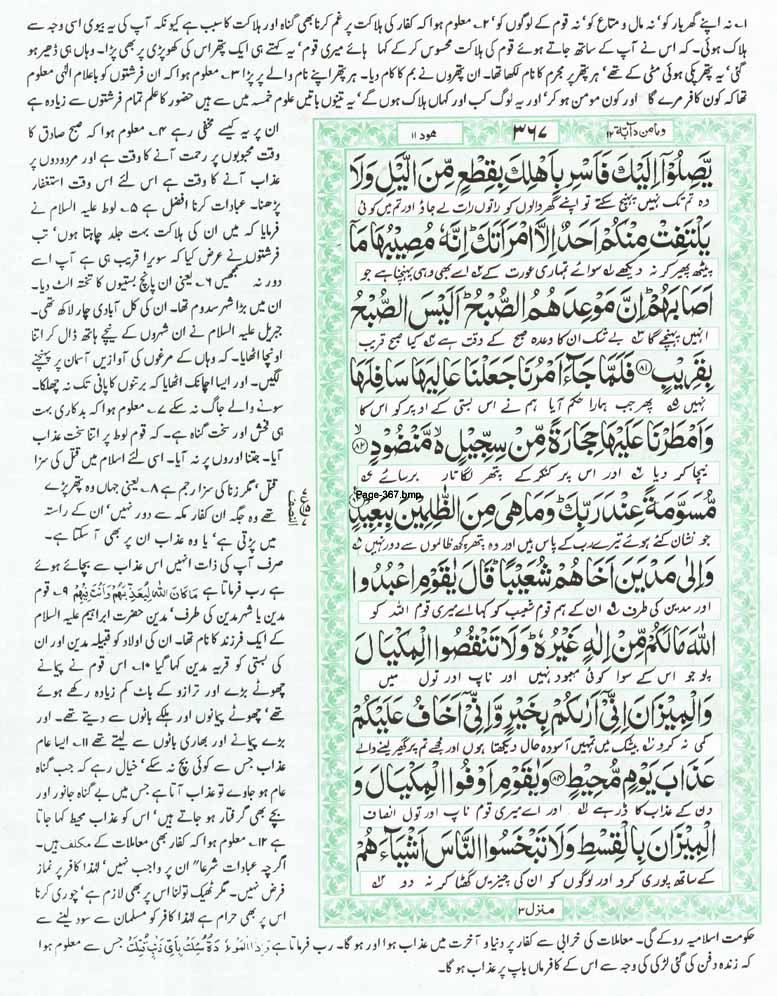 ۱ ۔ نہ اپنے گھر بار کو' نہ مال و متاع کو' نہ قوم کے لوگوں کو' ۲ ۔ معلوم ہوا کہ کفار کی ہلاکت پر غم کرنا بھی گناہ اور ہلاکت کا سبب ہے کیونکہ آپ کی یہ بیوی اسی وجہ سے
ہلاک ہوئی۔ کہ اس نے آپ کے ساتھ جاتے ہوئے قوم کی ہلاکت محسوس کر کے کہا ہائے میری قوم' یہ کہتے ہی ایک پتھر اس کی کھوپڑی پر بھی پڑا۔ وہاں ہی ڈھیر ہو
گئی' یہ پتھر پکی ہوئی مٹی کے تھے' ہر پتھر پر مجرم کا نام لکھا تھا۔ ان پتھروں نے بم کا کام دیا۔ ہر پتھر اپنے نام والے پر پڑا ۳ ۔ معلوم ہوا کہ ان فرشتوں کو باعلام الٰہی معلوم
تھا کہ کون کافر مرے گا اور کون مومن ہو کر' اور یہ لوگ کب اور کہاں ہلاک ہوں گے' یہ تینوں باتیں علوم خمسہ میں سے ہیں حضور کا علم تمام فرشتوں سے زیادہ ہے
ومامن دآبۃ ۱۲
۳۶۷
ھود ۱۱
یَّصِلُوْۤا اِلَیْكَ فَاَسْرِ بِاَهْلِكَ بِقِطْعٍ مِّنَ الَّیْلِ وَلَا
وہ تم تک نہیں پہنچ سکتے تو اپنے گھر والوں کو راتوں رات لے جاؤ اور تم میں کوئی
یَلْتَفِتْ مِنْكُمْ اَحَدٌ اِلَّا امْرَاَتَكَ ؕ اِنَّهٗ مُصِیْبُهَا مَاۤ
پیٹھ پھیر کر نہ دیکھے سوائے تمہاری عورت کے اسے بھی وہی پہنچنا ہے جو
اَصَابَهُمْ ؕ اِنَّ مَوْعِدَهُمُ الصُّبْحُ ؕ اَلَیْسَ الصُّبْحُ
انہیں پہنچے گا بے شک ان کا وعدہ صبح کے وقت ہے کیا صبح قریب
بِقَرِیْبٍ ۸۱ فَلَمَّا جَآءَ اَمْرُنَا جَعَلْنَا عَالِیَهَا سَافِلَهَا
نہیں پھر جب ہمارا حکم آیا ہم نے اس بستی کے اوپر کو اس کا
وَاَمْطَرْنَا عَلَیْهَا حِجَارَةً مِّنْ سِجِّیْلٍ ۙ مَّنْضُوْدٍ ۸۲
نیچا کر دیا اور اس پر کنکر کے پتھر لگاتار برسائے
Page-367.bmp
مُّسَوَّمَةً عِنْدَ رَبِّكَ ؕ وَمَا هِیَ مِنَ الظّٰلِمِیْنَ بِبَعِیْدٍ
جو نشان کئے ہوئے تیرے رب کے پاس ہیں اور وہ پتھر کچھ ظالموں سے دور نہیں
وَاِلٰی مَدْیَنَ اَخَاهُمْ شُعَیْبًا ؕ قَالَ یٰقَوْمِ اعْبُدُوا
اور مدین کی طرف ان کے ہم قوم شعیب کو کہا اے میری قوم اللہ کو
اللّٰهَ مَا لَكُمْ مِّنْ اِلٰهٍ غَیْرُهٗ ؕ وَلَا تَنْقُصُوا الْمِكْیَالَ
پوجو اس کے سوا کوئی معبود نہیں اور ناپ اور تول میں
وَالْمِیْزَانَ اِنِّیْۤ اَرٰىكُمْ بِخَیْرٍ وَّاِنِّیْۤ اَخَافُ عَلَیْكُمْ
کمی نہ کرو بیشک میں تمہیں آسودہ حال دیکھتا ہوں اور مجھے تم پر گھیر لینے والے
عَذَابَ یَوْمٍ مُّحِیْطٍ ۸۴ وَیٰقَوْمِ اَوْفُوا الْمِكْیَالَ وَ
دن کے عذاب کا ڈر ہے اور اے میری قوم ناپ اور تول انصاف
الْمِیْزَانَ بِالْقِسْطِ وَلَا تَبْخَسُوا النَّاسَ اَشْیَآءَهُمْ
کے ساتھ پوری کرو اور لوگوں کو ان کی چیزیں گھٹا کر نہ دو
منزل ۳
ان پر یہ کیسے مخفی رہے ۴ ۔ معلوم ہوا کہ صبح صادق کا
وقت محبوبوں پر رحمت آنے کا وقت ہے اور مردودوں پر
عذاب آنے کا وقت ہے اس لئے اس وقت استغفار
پڑھنا۔ عبادات کرنا افضل ہے ۵ ۔ لوط علیہ السلام نے
فرمایا کہ میں ان کی ہلاکت بہت جلد چاہتا ہوں' تب
فرشتوں نے عرض کیا کہ سویرا قریب ہی ہے آپ اسے
دور نہ سمجھیں ۶ ۔ یعنی ان پانچ بستیوں کا تختہ الٹ دیا۔
ان میں بڑا شہر سدوم تھا۔ ان کی کل آبادی چار لاکھ تھی۔
جبریل علیہ السلام نے ان شہروں کے نیچے ہاتھ ڈال کر اتنا
اونچا اٹھایا۔ کہ وہاں کے مرغوں کی آوازیں آسمان پر پہنچنے
لگیں۔ اور ایسا اچانک اٹھایا کہ برتنوں کا پانی تک نہ چھلکا۔
سونے والے جاگ نہ سکے ۷ ۔ معلوم ہوا کہ بدکاری بہت
ہی فحش اور سخت گناہ ہے۔ کہ قوم لوط پر اتنا سخت عذاب
آیا۔ جتنا اوروں پر نہ آیا۔ اسی لئے اسلام میں قتل کی سزا
قتل' مگر زنا کی سزا رجم ہے ۸ ۔ یعنی جہاں وہ پتھر پڑے
تھے وہ جگہ ان کفار مکہ سے دور نہیں' ان کے راستہ
میں پڑتی ہے' یا وہ عذاب ان پر بھی آ سکتا ہے۔
صرف آپ کی ذات انہیں اس عذاب سے بچائے ہوئے
ہے رب فرماتا ہے مَاكَانَ اللّٰهُ لِیُعَذِّبَهُمْ وَاَنْتَ فِیْهِمْ ۹ ۔ قوم
مدین یا شہر مدین کی طرف' مدین حضرت ابراہیم علیہ السلام
کے ایک فرزند کا نام تھا۔ ان کی اولاد کو قبیلہ مدین اور ان
کی بستی کو قریہ مدین کہا گیا ۱۰ ۔ اس قوم نے پیمانے
چھوٹے بڑے اور ترازو کے باٹ کم زیادہ رکھے ہوئے
تھے' چھوٹے پیمانوں اور ہلکے باٹوں سے دیتے تھے۔ اور
بڑے پیمانے اور بھاری باٹوں سے لیتے تھے ۱۱ ۔ ایسا عام
عذاب جس سے کوئی بچ نہ سکے' خیال رہے کہ جب گناہ
عام ہو جاوے تو عذاب آتا ہے جس میں بے گناہ جانور اور
بچے بھی گرفتار ہو جاتے ہیں' اس کو عذاب محیط کہا جاتا
ہے ۱۲ ۔ معلوم ہوا کہ کفار بھی معاملات کے مکلف ہیں۔
اگرچہ عبادات شرعا" ان پر واجب نہیں' لہٰذا کافر پر نماز
فرض نہیں۔ مگر ٹھیک تولنا اس پر بھی لازم ہے' چوری کرنا
اس پر بھی حرام ہے لہٰذا کافر کو مسلمان سے سود لینے سے
حکومت اسلامیہ روکے گی۔ معاملات کی خرابی سے کفار پر دنیا و آخرت میں عذاب ہوا اور ہو گا۔ رب فرماتا ہے وَاِذَا الْمَوْءٗدَةُ سُئِلَتْ بِاَیِّ ذَنْۢبٍ قُتِلَتْ جس سے معلوم ہوا
کہ زندہ دفن کی گئی لڑکی کی وجہ سے اس کے کافر ماں باپ پر عذاب ہو گا۔